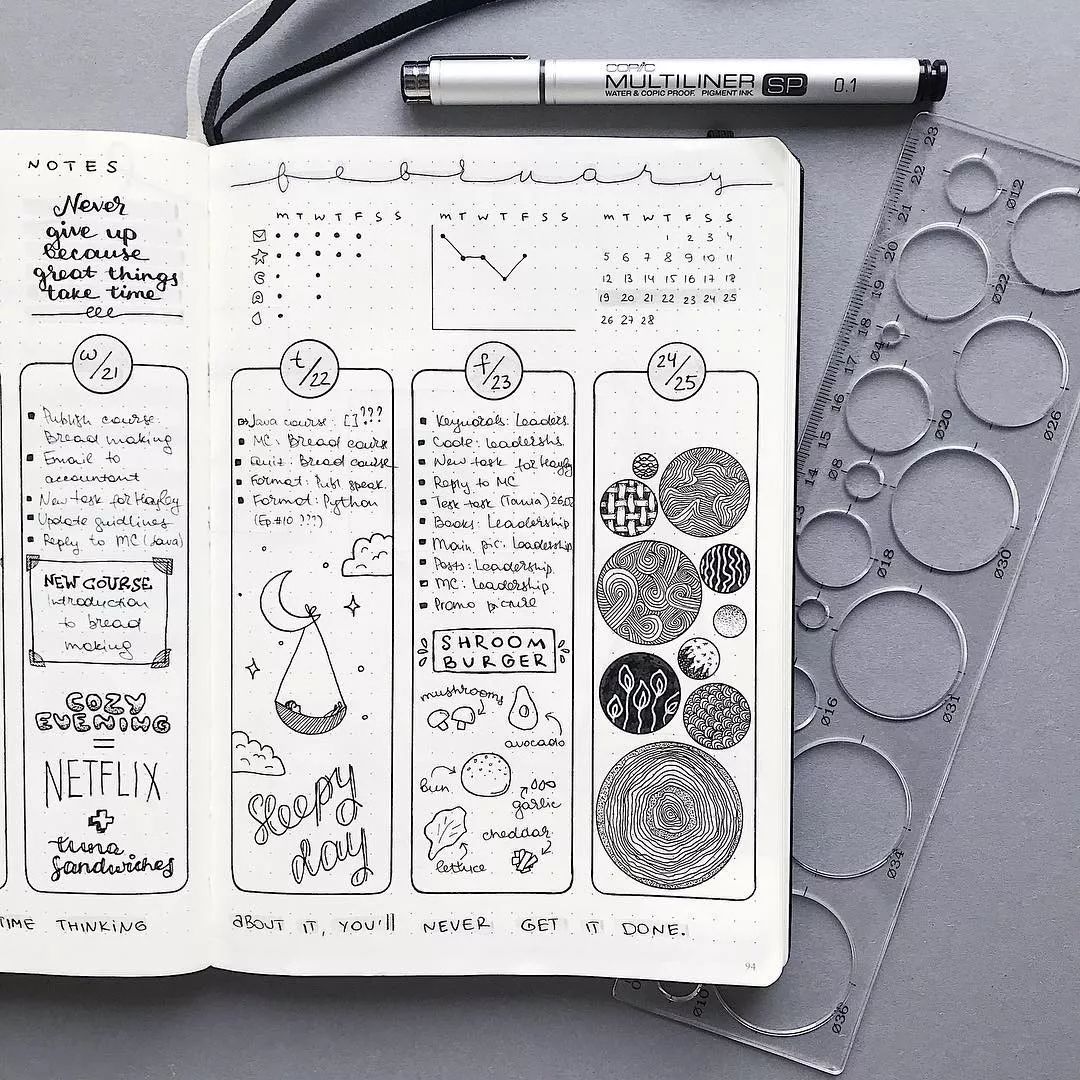 COPIC
MULTILINER SP 0.1
WATER & COPIC PROOF. PIGMENT INK
NOTES
Never
give up
because
great things
take time
february
M T W T F S S
M T W T F S S
M T W T F S S
1 2 3 4
5 6 7 8 9 10 11
12 13 14 15 16 17 18
19 20 21 22 23 24 25
26 27 28
W/21
Publish course:
Bread making
Email to
accountant
New task for Hayley
Update guidlines
Reply to MC (Java)
NEW COURSE
introduction
to bread
making
COZY
EVENING
=
NETFLIX
+
tuna
sandwiches
t/22
Java course: [] ???
MC: Bread course
Quiz: Bread course
Format: Publ speak.
Format: Python
(Ep.#10 ???)
sleepy
day
f/23
Keywords: Leaders
Code: Leadershs.
New task for Hayley
Reply to MC
Test task (Tania)
Books: Leadership
Main pic: Leadership
Posts: Leadership
MC: Leadership
Promo picture
SHROOM
BURGER
mushrooms
avocado
bun
garlic
cheddar
lettuce
24/25
TIME THINKING
ABOUT IT, YOU'll NEVER GET IT DONE.
94
23
22
21
20
19
18
17
16
15
14
13
Ø12
Ø22
Ø4
Ø26
Ø20
Ø8
Ø30
Ø18
Ø31
Ø16
Ø34
Ø10
Ø36